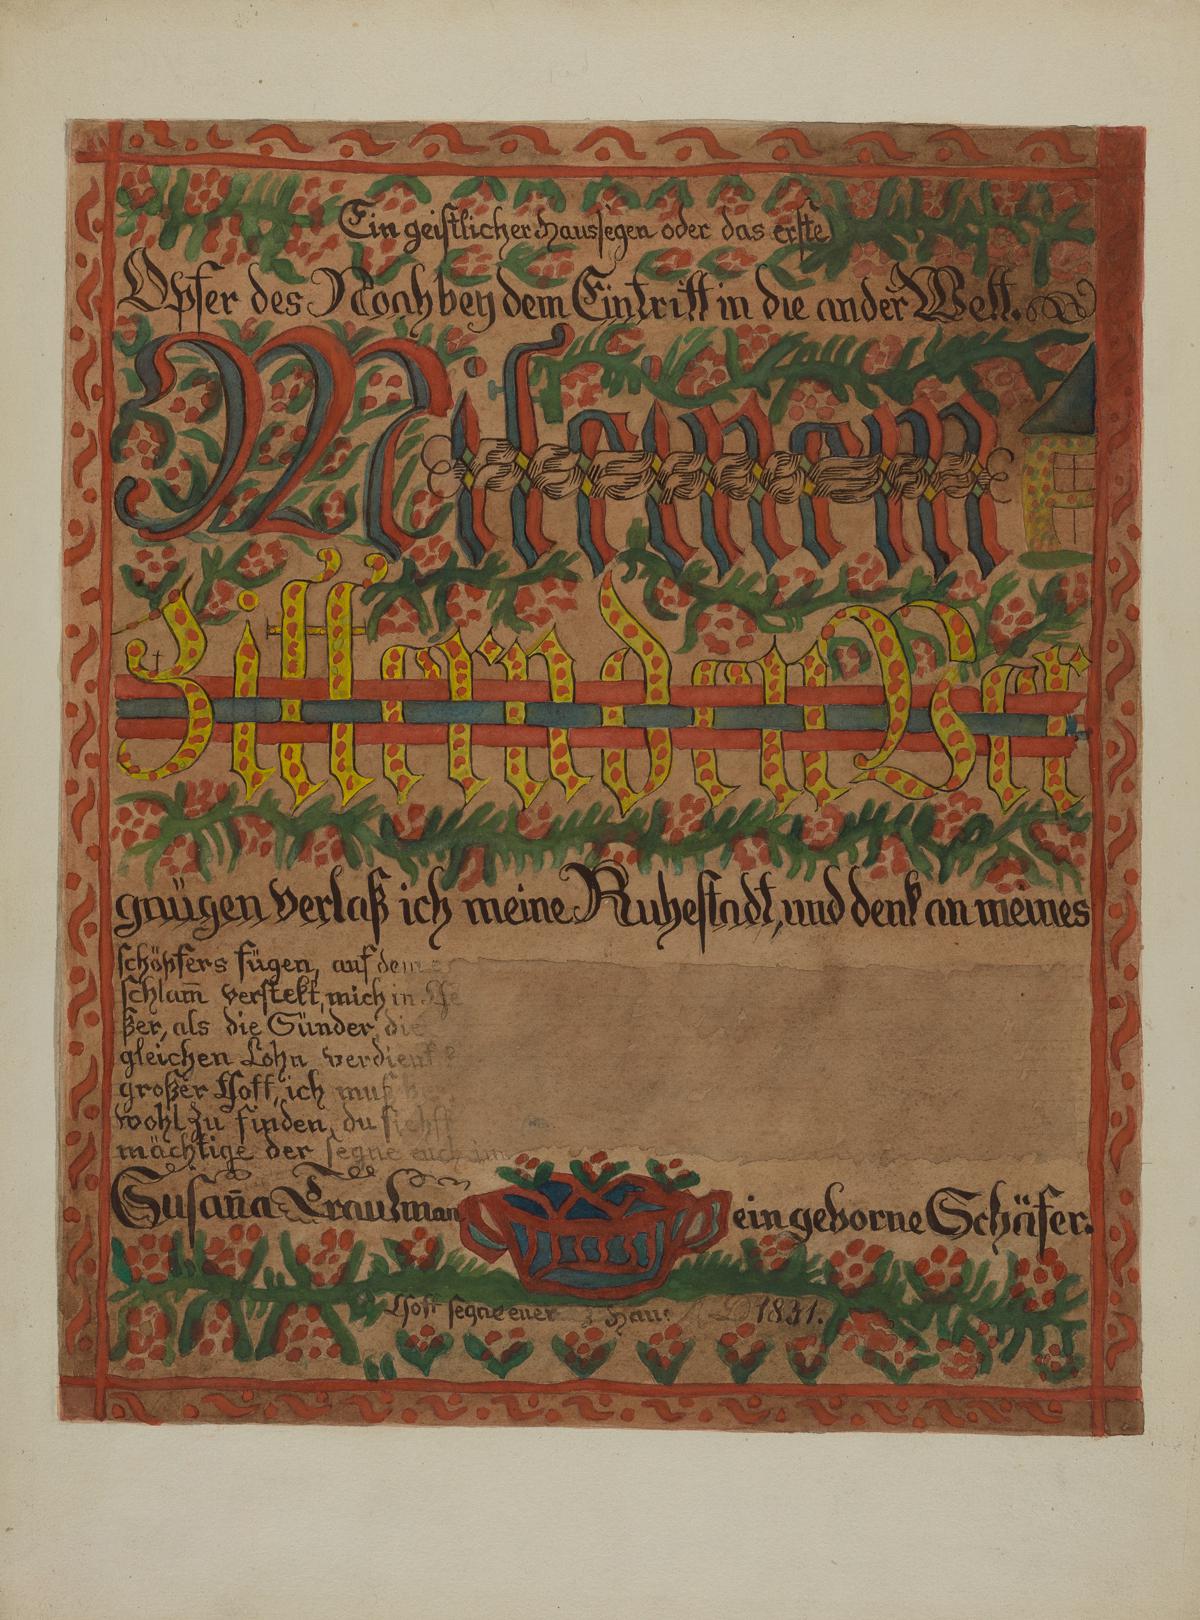 Ein geistlicher Haussegen oder das erste
Opfer des Noah bey dem Eintritt in die ander Welt.
Mit einem
Zittenden Ver
gnügen verlaß ich meine Ruhestadt, und denk an meines
schöpfers fügen, auf dem
schlam̅ verstekt, mich in
ßer, als die Sünder, die
gleichen Lohn verdient
großer Gott, ich muß
wohl zu finden, du siehst
mächtige der segne euch im
Susan̅a Trautman ein geborne Schäfer.
Gott segne euer Haus AD 1831.